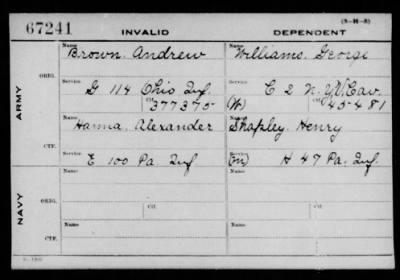 67241 INVALID DEPENDENT (3-H-5)
Name Brown. Andrew Name Williams. George
ORIG.
Service G 114 Ohio Inf. Service C 2 N.Y. Cav.
Ctf. 377375 (W) Ctf. 45481
ARMY
Name Hanna. Alexander Name Shapley. Henry
CTF.
Service E 100 Pa. Inf Service (m) H 47 Pa. Inf.
Name Name
ORIG.
Service Ctf. Service Ctf.
NAVY
Name Name
CTF.